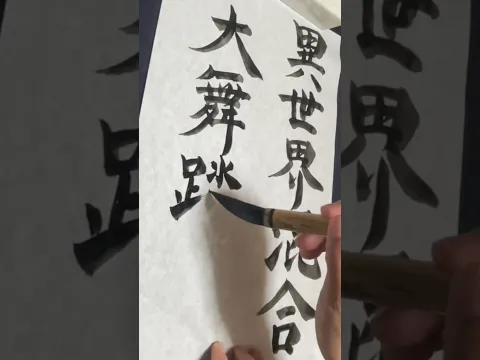 異世界混合
大舞踏